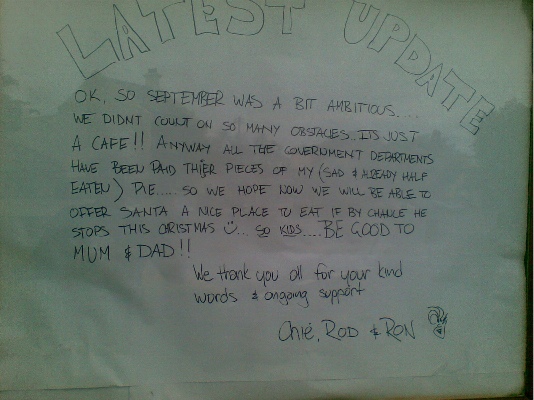 LATEST UPDATE
OK, SO SEPTEMBER WAS A BIT AMBITIOUS....
WE DIDNT COUNT ON SO MANY OBSTACLES.. ITS JUST
A CAFE!! ANYWAY ALL THE GOVERNMENT DEPARTMENTS
HAVE BEEN PAID THIER PIECES OF MY (SAD & ALREADY HALF
EATEN) PIE..... SO WE HOPE NOW WE WILL BE ABLE TO
OFFER SANTA A NICE PLACE TO EAT IF BY CHANCE HE
STOPS THIS CRISTMAS ... SO KIDS.... BE GOOD TO
MUM & DAD!!
We thank you all for your kind
words & ongoing support
Chié, ROD & RON